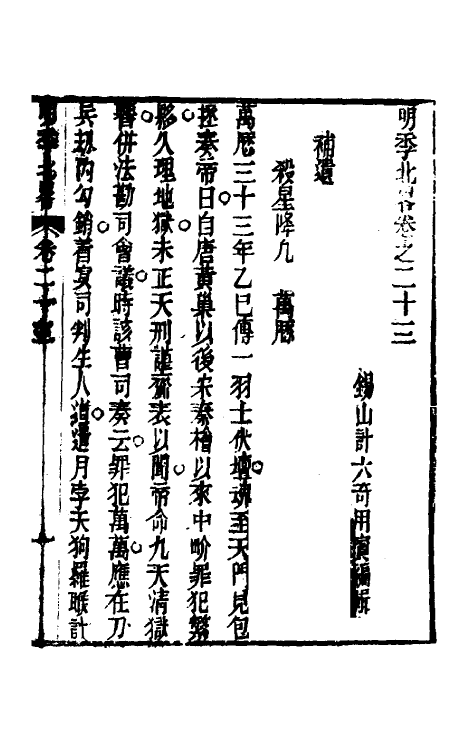 明季北畧卷之二十三
錫山計六奇用賓編輯
補遺
殺星降凡　萬曆
萬曆三十三年乙巳傳一羽士伏壇魂至天門見包
拯奏帝曰自唐黃巢以後宋秦檜以來中畍罪犯繁
夥久理地獄未正天刑謹齎表以聞帝命九天清獄
曹併法勘司會議時該曹司奏云罪犯萬萬應在刀
兵刼內勾銷着冥司判生人道遣月孛天狗羅睺計
明季北畧　卷二十三